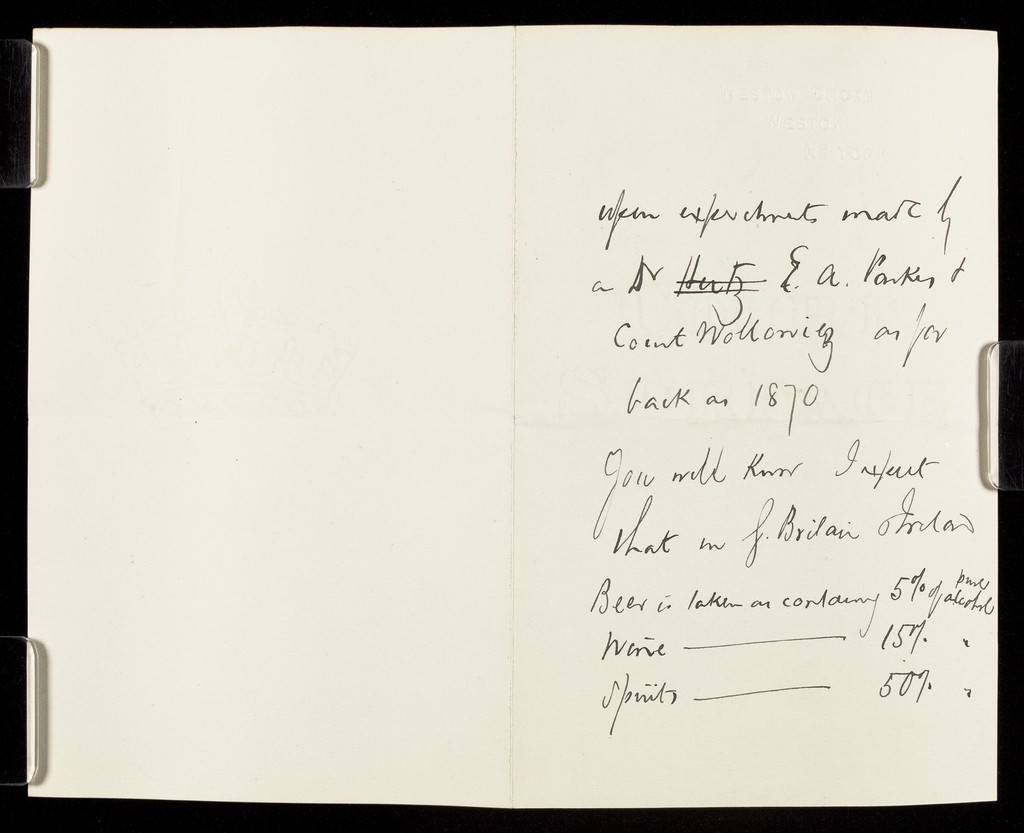 upon experiments made by
a Dr Hertz E. A. Parkes &
Count Wollowicz as far
back as 1870
You will know I expect
that in G. Britain & Ireland
Beer is taken as containing 5% of pure alcohol
Wine ———— 15% "
Spirits ———— 50% "